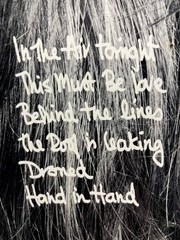 In the Air tonight
This Must Be love
Behind the lines
the Roof is leaking
Droned
Hand in Hand